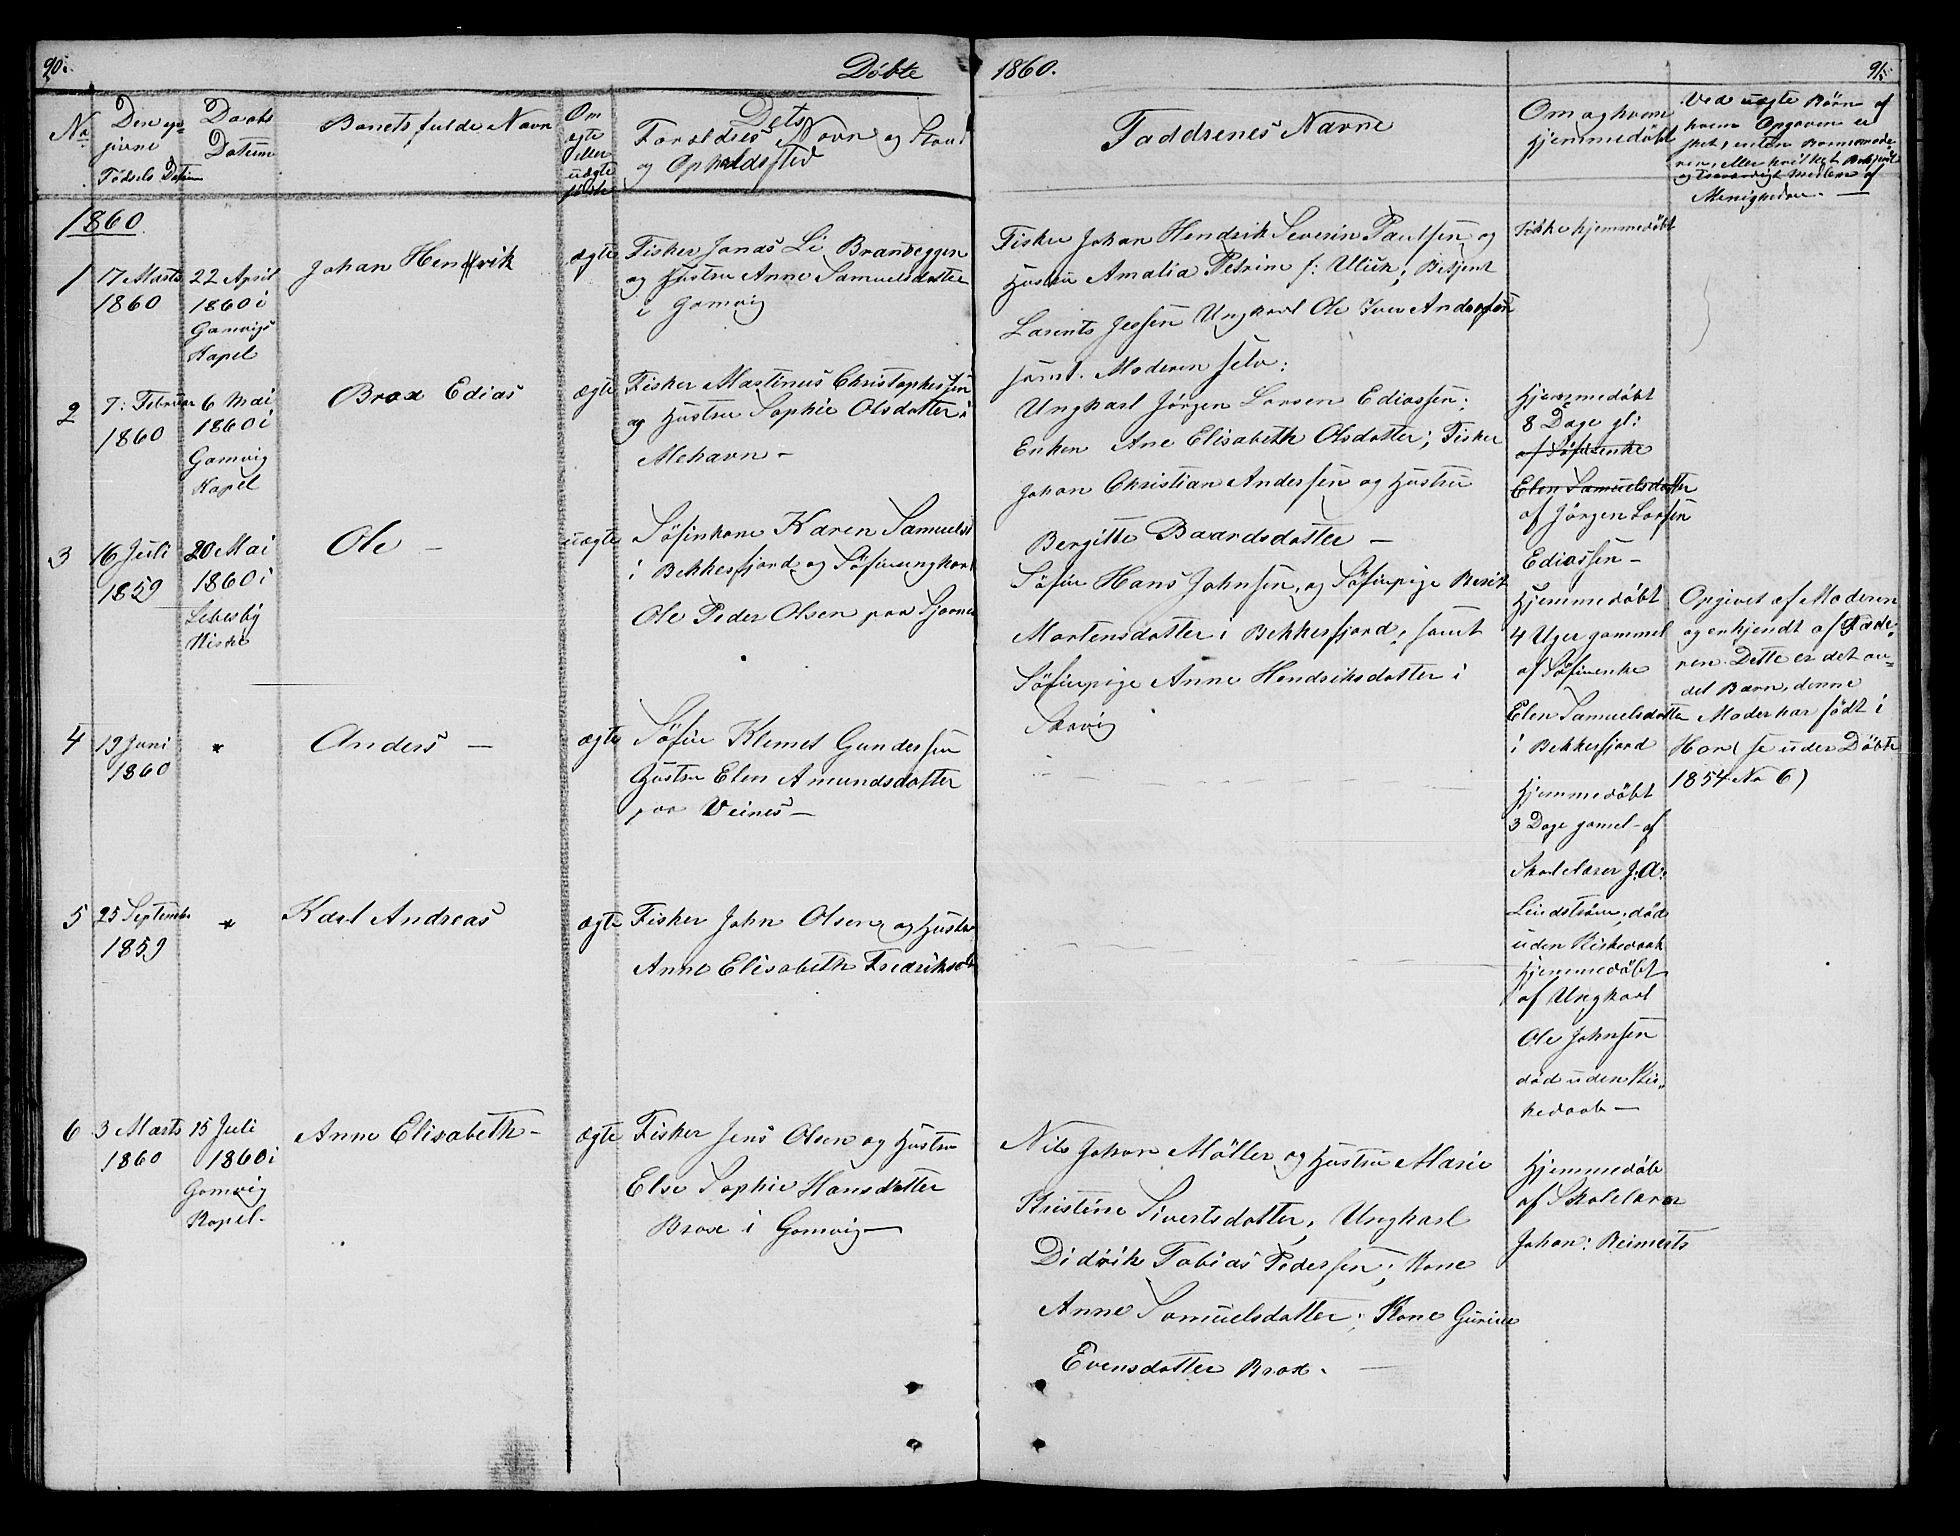 90.
Døbte
1860.
91.
No
Den op-
givne
Fødsels Datum
Daabs
Datum
Barnets fulde Navn
Om
ægte
eller
uægte
født
Dets
Forældres Navn og Stand
og Opholdssted
Faddrenes Navne
Om og hvem
hjemmedøbt
Ved uægte Børn af
hvem Opgaven er
skeet, enten Barnemode-
ren, eller hvilket
og troværdigt Medlem af
Menigheden. —
1860.
1
17 Marts
1860
22 April
1860 i
Gamvigs
Kapel
Johan Hendrik
ægte
Fisker Jonas Li Brandeggen
og Hustru Anne Samuelsdatter
i Gamvig
Fisker Johan Hendrik Severin Paulsen og
Hustru Amalia Petrine f: Ulich; Betjent
Lorents Jessen Ungkarl Ole Iver Andersen
samt. Moderen selv:
Ikke hjemmedøbt
2
7: Februar
1860
6 Mai
1860 i
Gamvig
Kapel
Brox Edias
ægte
Fisker Martinus Christophersen
og Hustru Sophie Olsdatter i
Mehavn —
Ungkarl Jørgen Larsen Ediassen;
Enken Ane Elisabeth Olsdatter; Fisker
Johan Christian Andersen og Hustru
Bergitte Baardsdatter —
Hjemmedøbt
8 Dage gl:
af Søfinenke
Elen Samuelsdatter
af Jørgen Larsen
Ediassen —
3
16 Juli
1859
20 Mai
1860 i
Lebesby
Kirke
Ole —
uægte
Søfinkone Karen Samuelsd
i Bekkesfjord og Søfinungkarl
Ole Peder Olsen paa
Søfin Hans Johnsen, og Søfinpige Berit
Mortensdatter i Bekkesfjord, samt
Søfinpige Anne Hendriksdatter i
Hjemmedøbt
4 Uger gammel
af Søfinenke
Elen Samuelsdatter
i Bekkesfjord
Opgivet af Moderen
og erkjendt af Fade-
ren. Dette er det an-
det Barn, denne
Moder har født i
Hor (se under Døbte
1854 No 6)
4
19 Juni
1860
*
Anders —
ægte
Søfin Klemet Gundersen
Hustru Elen Amundsdatter
paa Veines —
Hjemmedøbt
3 Dage gamel — af
Skolelærer J: A:
Lindstrøm, død
uden Kirkedaab
5
25 Septembr
1859
*
Karl Andreas
ægte
Fisker John Olsen og Hustru
Anne Elisabeth Fredriksd
Hjemmedøbt
af Ungkarl
Ole Johnsen
død uden Kir-
kedaab —
6
3 Marts
1860
15 Juli
1860 i
Gamvig
Kapel.
Anne Elisabeth —
ægte
Fisker Jens Olsen og Hustru
Else Sophie Hansdatter
Brox i Gamvig —
Nils Johan Møller og Hustru Marie
Kristine Sivertsdatter, Ungkarl
Didrik Tobias Pedersen; Kone
Anne Samuelsdatter; Kone Gurine
Evensdatter Brox. —
Hjemmedøb
af Skolelærer
Johan: Reimerts